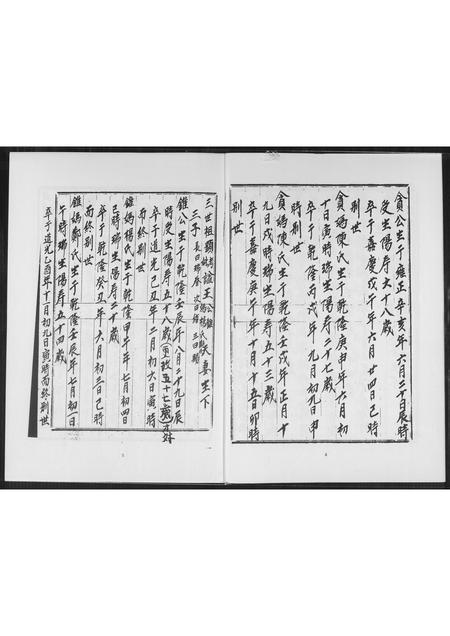 貪公生于雍正辛亥年六月二十日辰時
受生陽寿六十八歲
卒于嘉慶戊午年六月廿四日己時
別世
貪媽陳氏生于乾隆庚申年六月初
十日寅時瑞生陽寿二十七歲
卒于乾隆丙戌年九月初九日申
時別世
貪媽陳氏生于乾隆壬戌年正月十
九日戌時瑞生陽寿五十三歲
卒于嘉慶庚午年十一月十五日卯時
別世
4
三世祖顯
三子
錐公生于乾隆壬辰年八月二十九日辰
時受生陽寿五十八歲
卒于道光己丑年二月初六日寅時
而終別世
錐媽楊氏生于乾隆甲午年七月初四
己時瑞生陽寿二十歲
卒于乾隆癸丑年六月初三日己時
而終別世
錐媽鄭氏生于乾隆壬辰年七月初日
午時瑞生陽寿五十四歲
卒于道光乙酉年十一月初九日寅時而終別世
5